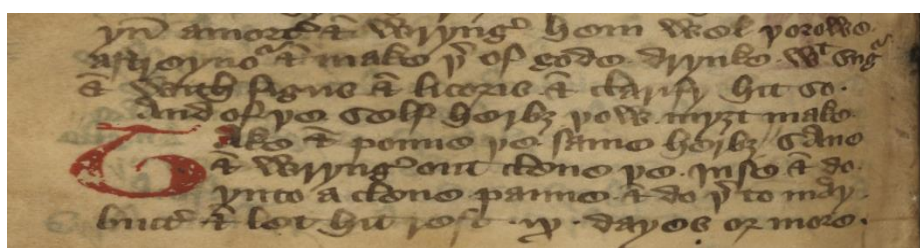 yn a morter & wryng hem wel þorowe
a streynor & make þr of gode drynke wt sugr
& with fygus & licoris & clarify hit so
And of þe self herbz þow myzt make
Take & ponne þe same herbz sane
& wryng out clene þe Juse & do
ynto a clene panne & do þr to may
buttr & let hit rest ix dayes or more